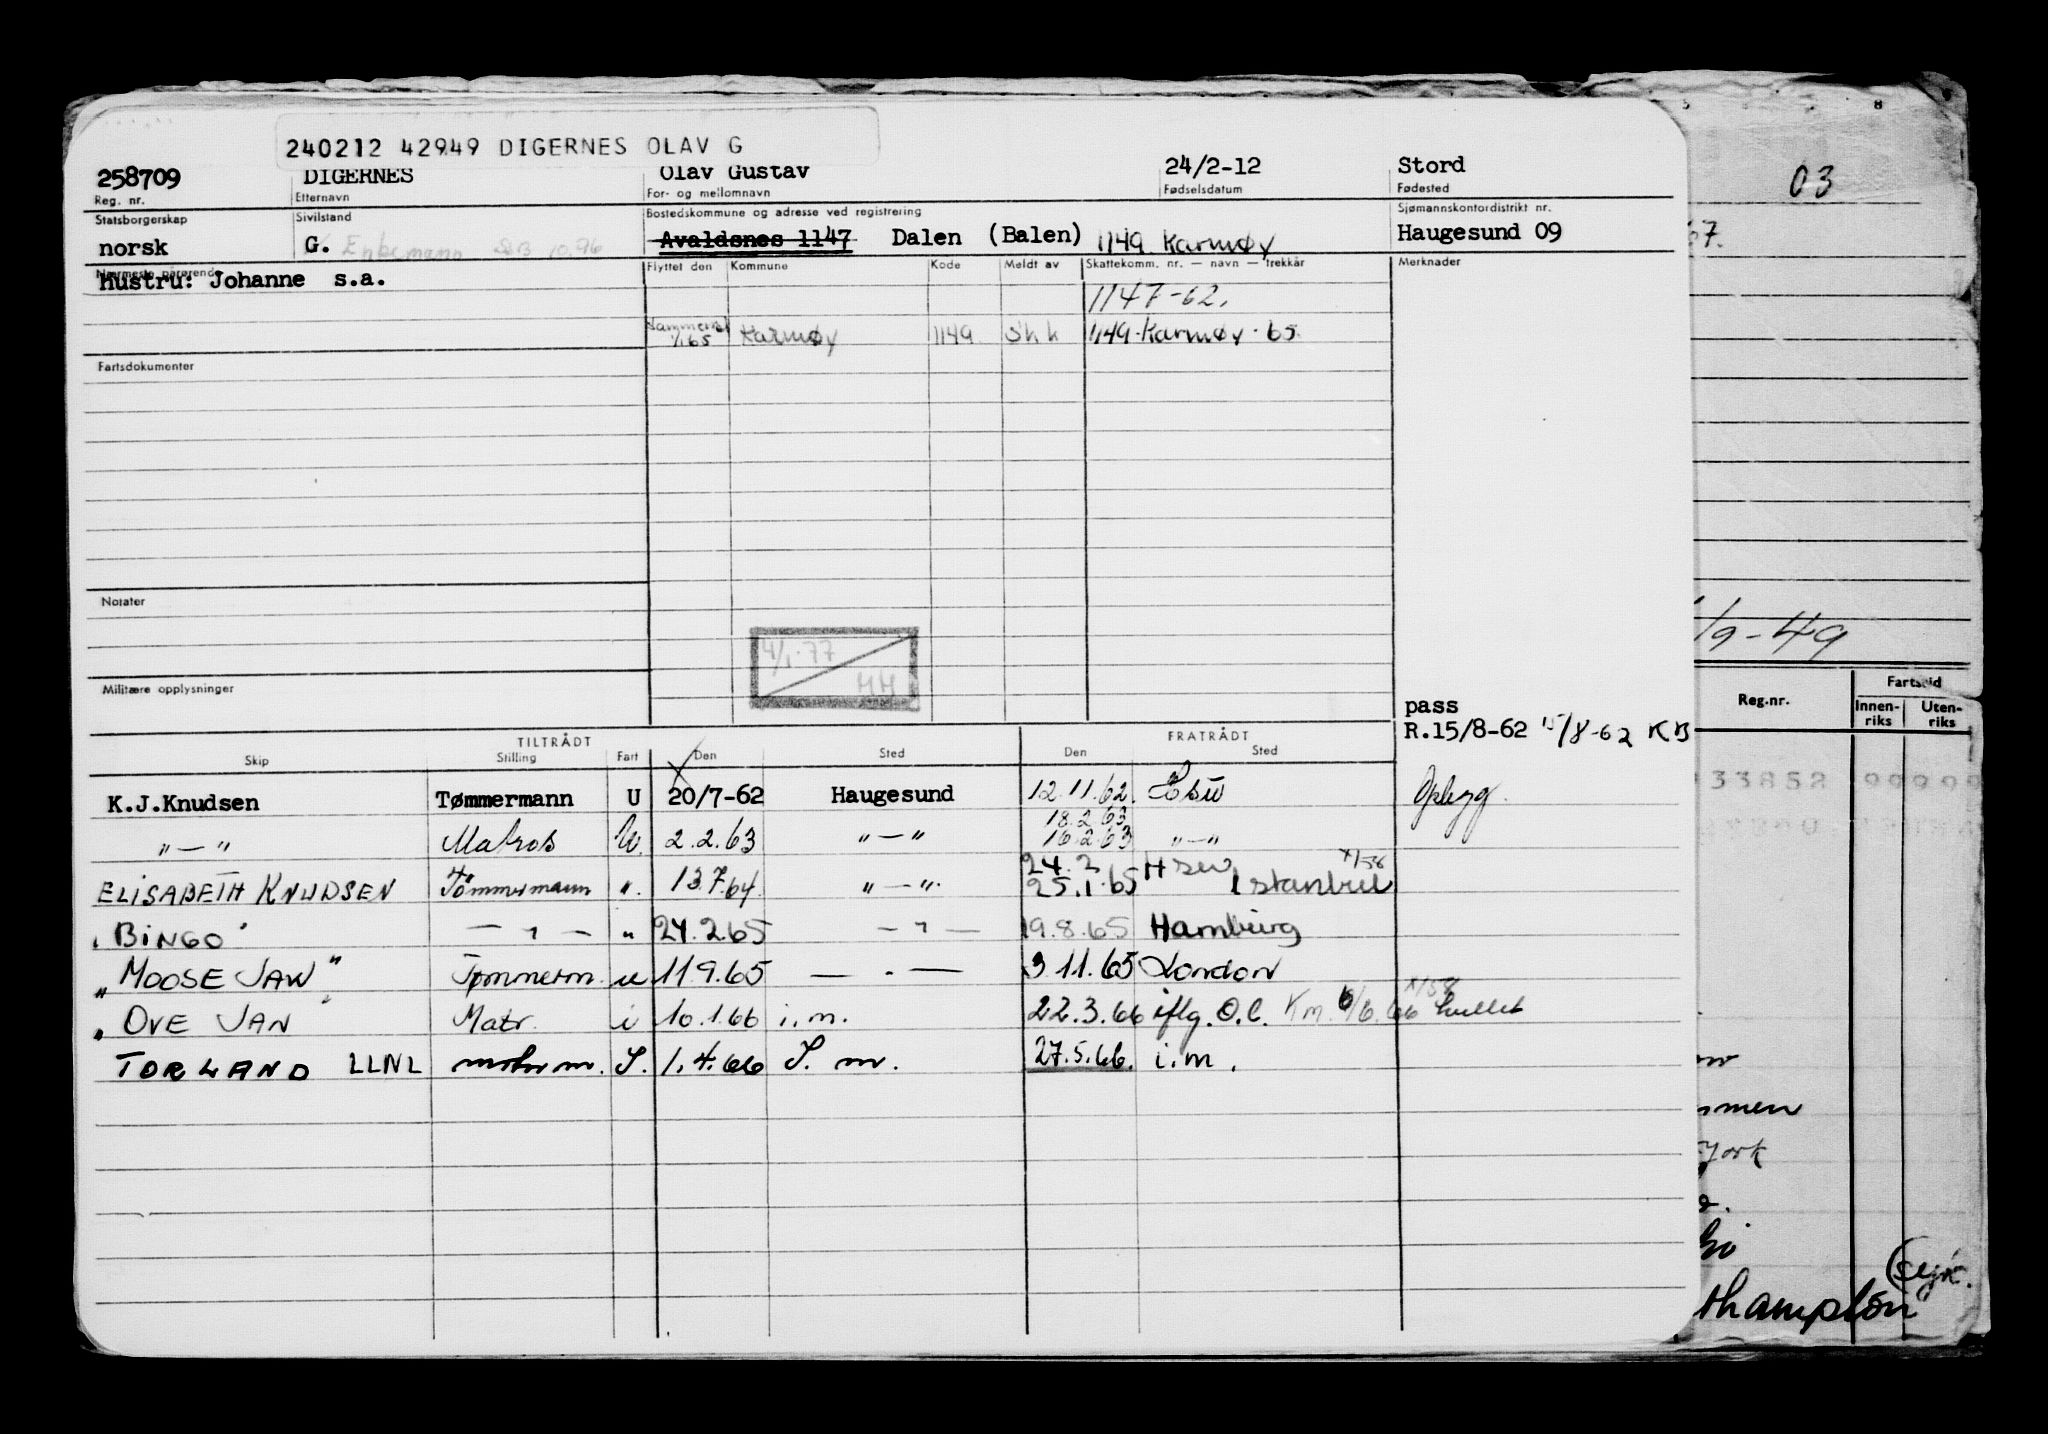 240212 42949 DIGERNES OLAV G
258709 DIGERNES Olav Gustav 24/2-12 Stord
Reg. nr. Etternavn For- og mellomnavn Fødselsdatum Fødested
Statsborgerskap Sivilstand Bostedskommune og adresse ved registrering Sjømannskontordistrikt nr.
norsk G. Enkemann 10.96 Avaldsnes 1147 Dalen (Balen) 1149 Karmøy Haugesund 09
Nærmeste pårørende Flyttet den Kommune Kode Meldt av Skattekomm. nr. — navn — trekkår Merknader
Hustru: Johanne s.a.
1147-62.
1/1 65 Karmøy 1149 Shk 1149 Karmøy 65
Fartsdokumenter
Notater
4/1-77
HH
Militære opplysninger
pass
R.15/8-62 15/8-62 KB
TILTRÅDT FRATRÅDT
Skip Stilling Fart Den Sted Den Sted
K.J.Knudsen Tømmermann U 20/7-62 Haugesund 12.11.62 Hsw
18.2.63
" — " Matros U. 2.2.63 " — " 16.2.63 " — "
24.2 Hsw x/58
ELISABETH KNUDSEN Tømmermann ". 13.7.64. " — " 25.1.65 Istanbul
"BINGO" — " — " 24.2.65 — " — 19.8.65 Hamburg
"MOOSE JAW" Tømmerm. u 11.9.65 — " — 3.11.65 London
x/58
"OVE JAN" Matr. i 10.1.66 i.m. 22.3.66 iflg. O.C. Km. 6/6.66
TORLAND LLNL S. 1.4.66 S. m. 27.5.66. i.m.
8
03
67.
1/9-49
Reg.nr. Fartstid
Innen-riks Uten-riks
33852
mmen
York
thampton